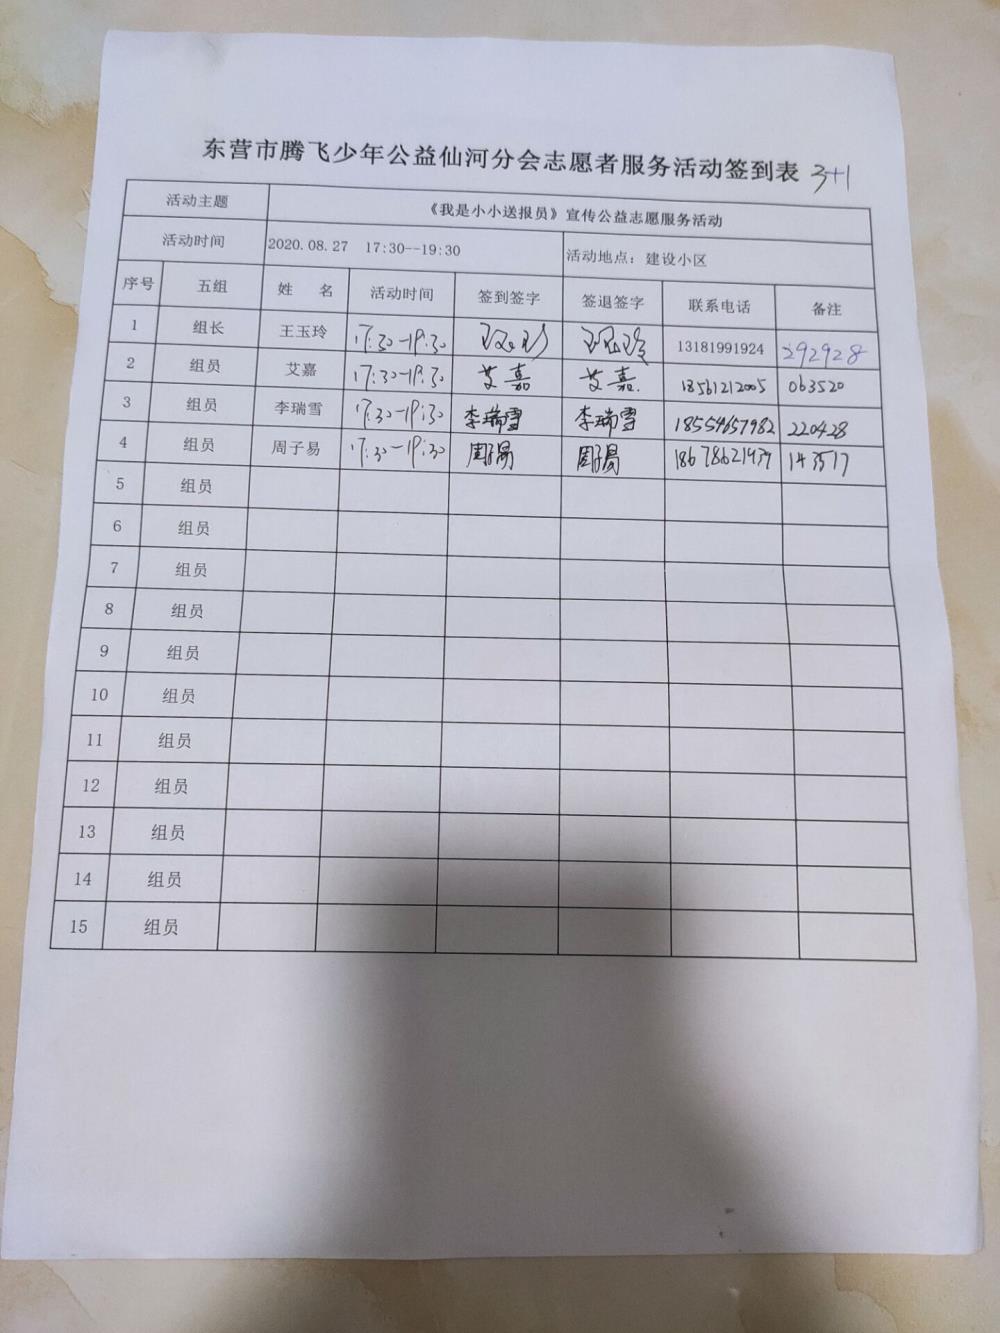 东营市腾飞少年公益仙河分会志愿者服务活动签到表 3+1
活动主题 《我是小小送报员》宣传公益志愿服务活动
活动时间 2020.08.27 17:30--19:30 活动地点：建设小区
序号 五组 姓 名 活动时间 签到签字 签退签字 联系电话 备注
1 组长 王玉玲 17:30-19:30 王玉玲 王玉玲 13181991924 292928
2 组员 艾嘉 17:30-19:30 艾嘉 艾嘉. 18561212005 063520
3 组员 李瑞雪 17:30-19:30 李瑞雪 李瑞雪 18554657982 220428
4 组员 周子易 17:30-19:30 周子易 周子易 143517
5 组员
6 组员
7 组员
8 组员
9 组员
10 组员
11 组员
12 组员
13 组员
14 组员
15 组员